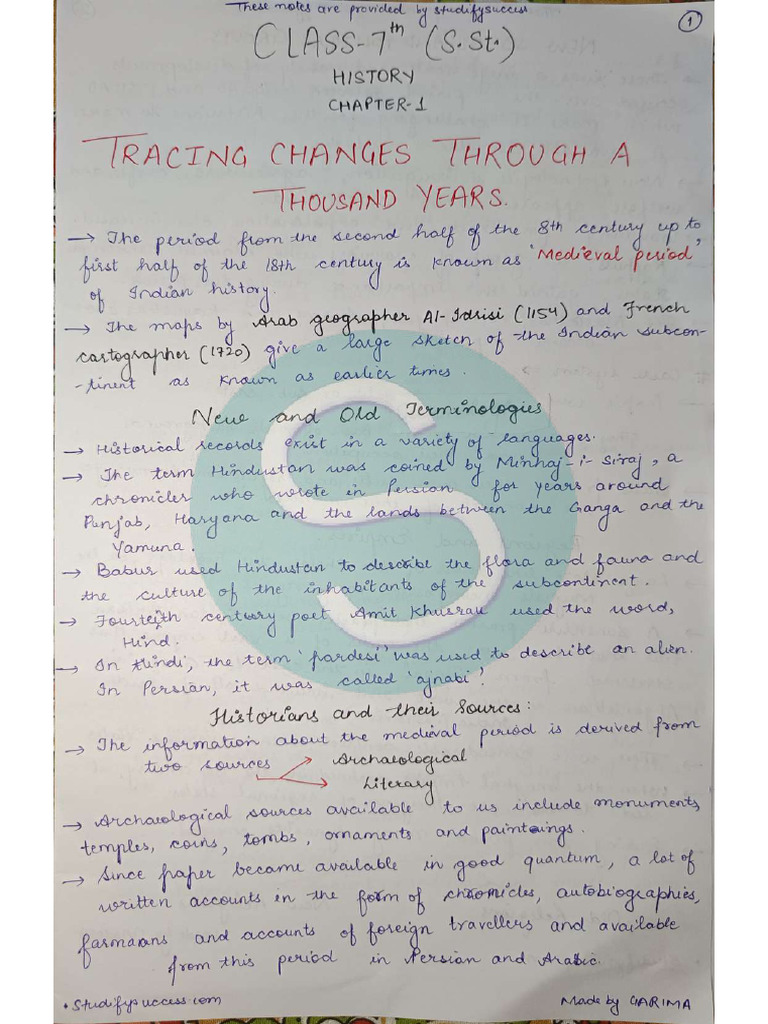 These notes are provided by studifysuccess
1
CLASS-7th (S.St.)
HISTORY
CHAPTER-1
TRACING CHANGES THROUGH A
THOUSAND YEARS.
→ The period from the second half of the 8th century up to
first half of the 18th century is known as 'Medieval period'
of Indian history.
→ The maps by Arab geographer Al-Idrisi (1154) and French
cartographer (1720) give a large sketch of the Indian subcon-
-tinent as known as earlier times.
New and Old Terminologies
→ Historical records exist in a variety of languages.
→ The term Hindustan was coined by Minhaj-i-Siraj, a
chronicler who wrote in Persian for years around
Punjab, Haryana and the lands between the Ganga and the
Yamuna.
→ Babur used Hindustan to describe the flora and fauna and
the culture of the inhabitants of the subcontinent.
→ Fourteith century poet Amit Khusrau used the word,
Hind.
→ In Hindi, the term 'pardesi' was used to describe an alien.
In Persian, it was called 'ajnabi'.
Historians and their Sources:
→ The information about the medieval period is derived from
two sources → Archaeological
→ Literary
→ Archaeological sources available to us include monuments,
temples, coins, tombs, ornaments and paintings.
→ Since paper became available in good quantum, a lot of
written accounts in the form of chronicles, autobiographies,
farmaans and accounts of foreign travellers and available
from this period in Persian and Arabic.
• Studifysuccess.com
Made by GARIMA